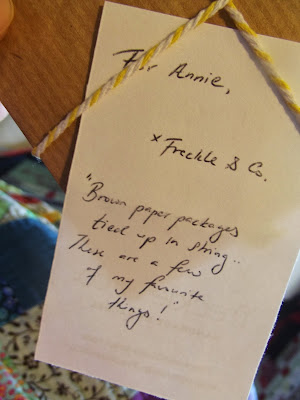 For Annie,
x Freckle & Co.
"Brown paper packages
tied up in string..
These are a few
of my favourite
things!"